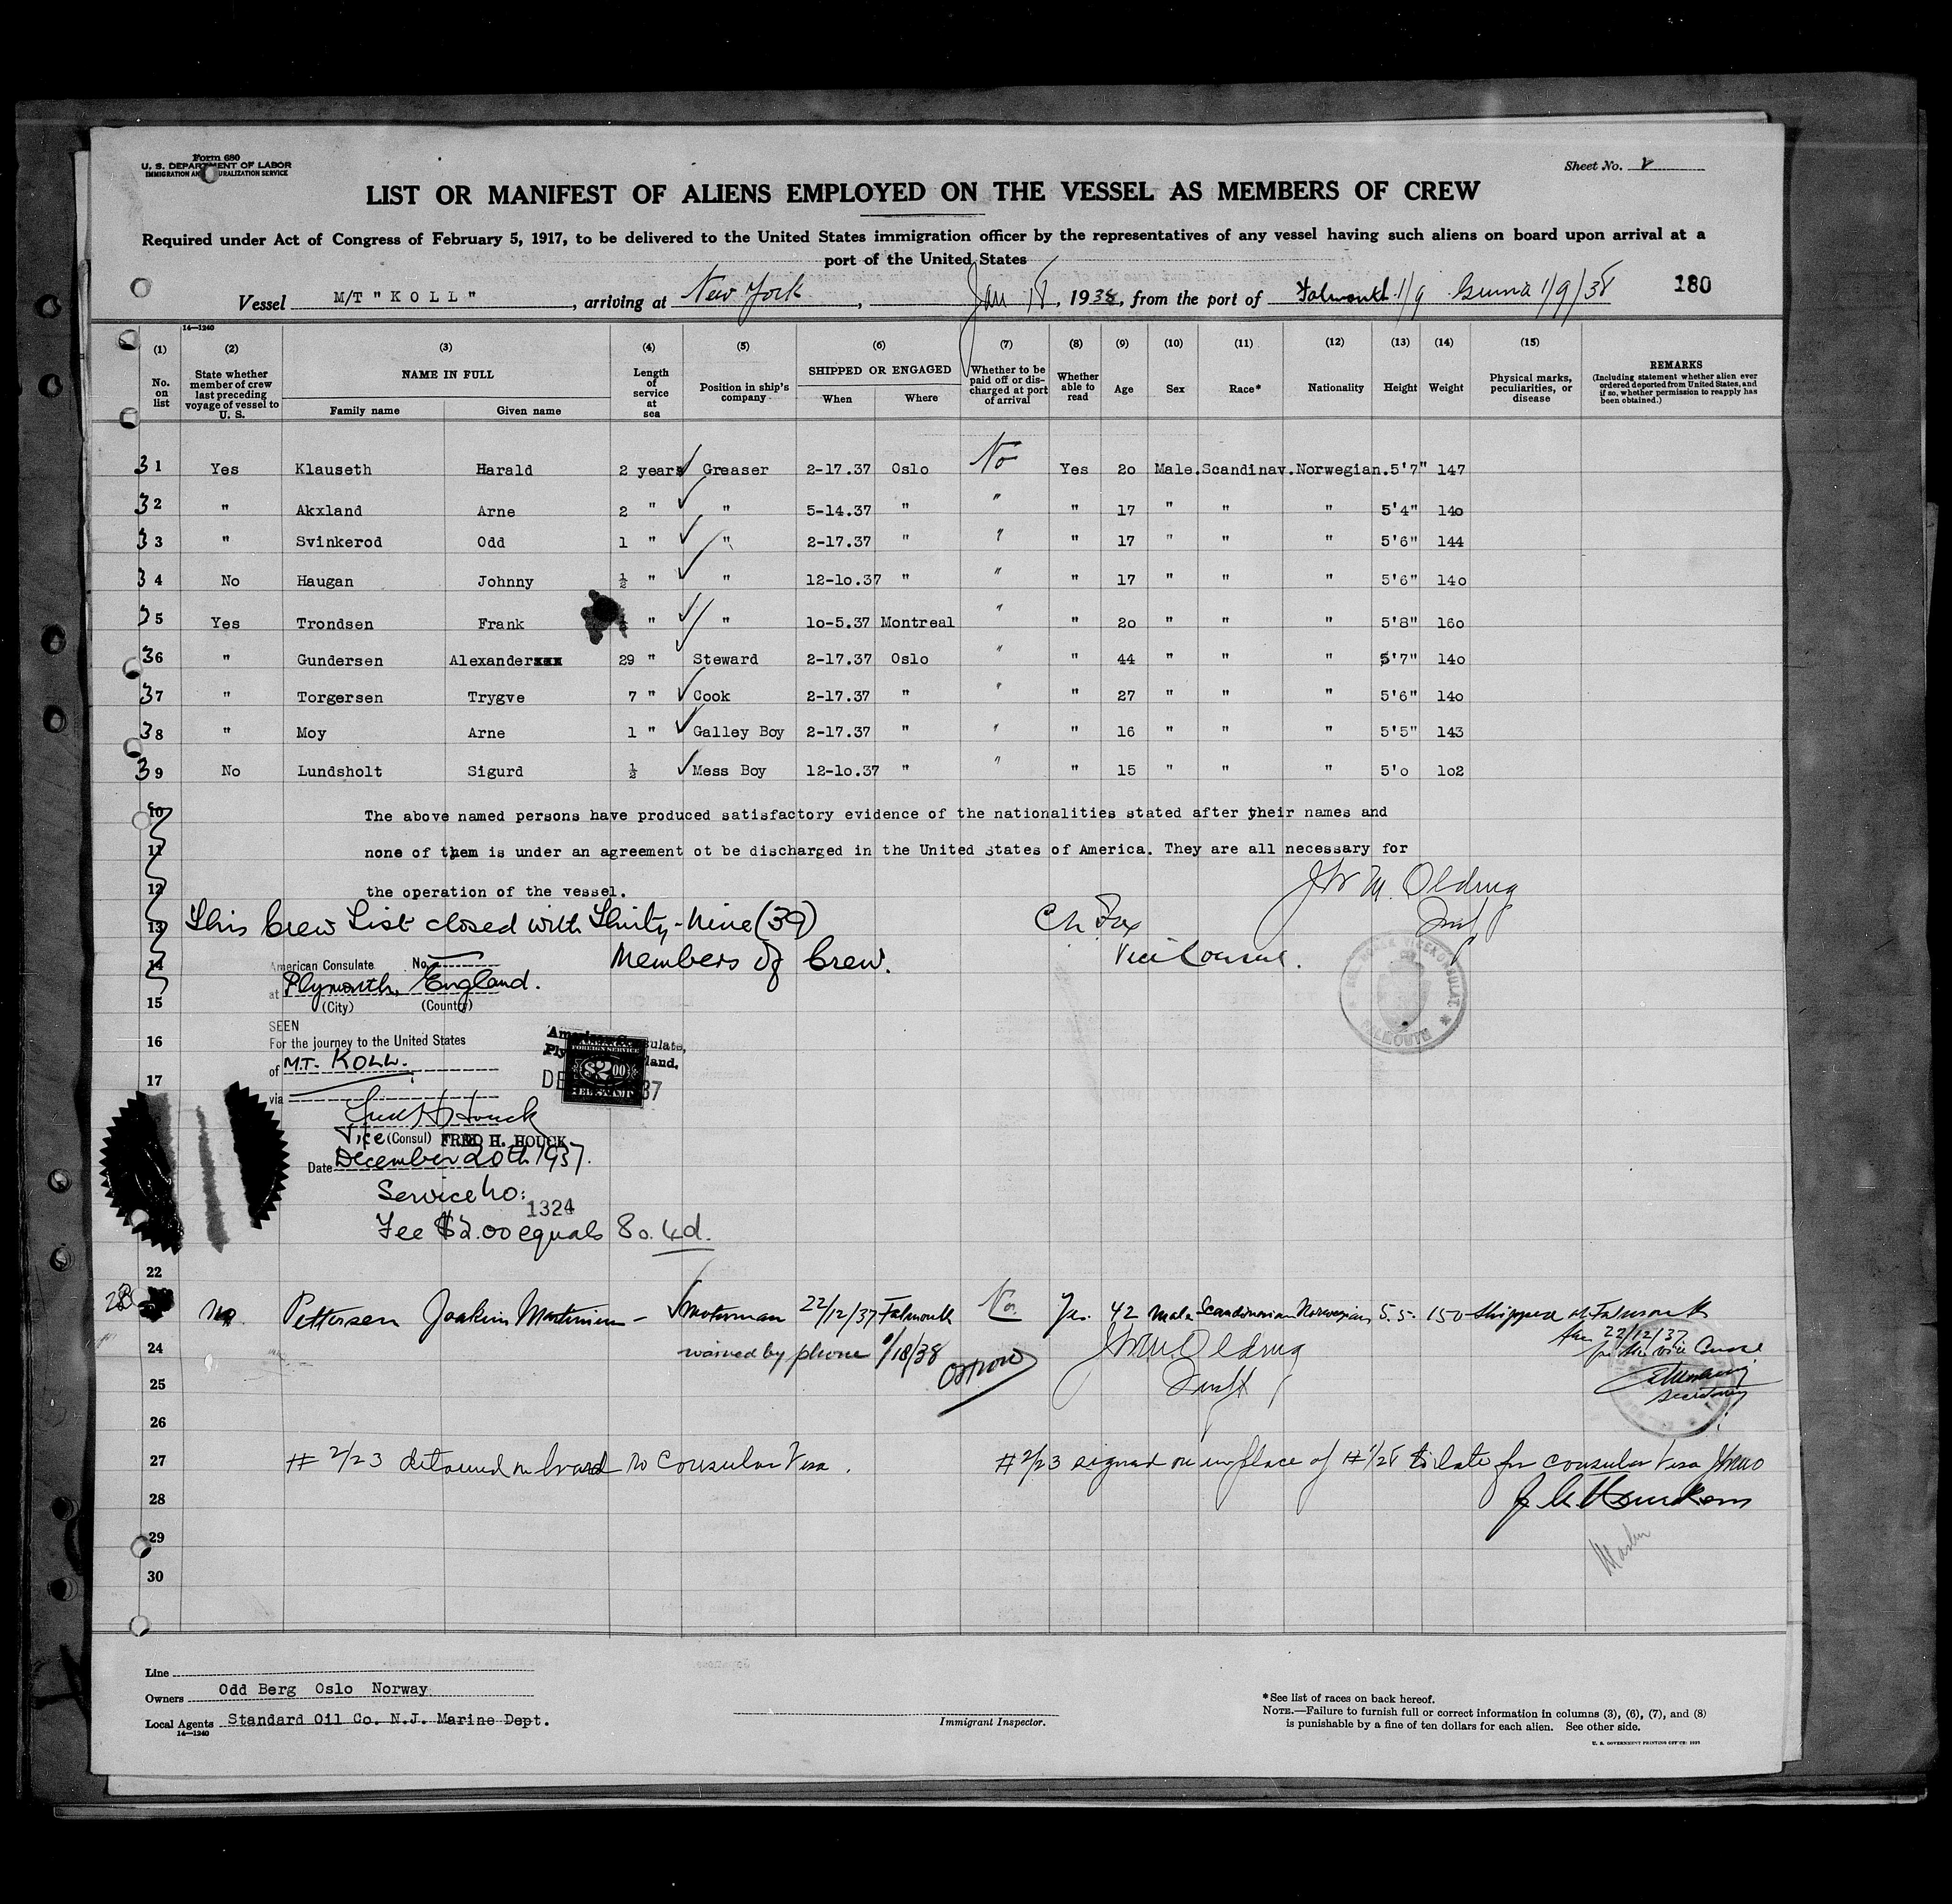 Form 680
U. S. DEPARTMENT OF LABOR
IMMIGRATION AND NATURALIZATION SERVICE
Sheet No.
LIST OR MANIFEST OF ALIENS EMPLOYED ON THE VESSEL AS MEMBERS OF CREW
Required under Act of Congress of February 5, 1917, to be delivered to the United States immigration officer by the representatives of any vessel having such aliens on board upon arrival at a
port of the United States
Vessel M/T "KOLL", arriving at New York, Jan 18, 1938, from the port of Falmouth 1/9 1/9/38 180
14—1240
(1) (2) (3) (4) (5) (6) (7) (8) (9) (10) (11) (12) (13) (14) (15)
No. on list State whether member of crew last preceding voyage of vessel to U. S. NAME IN FULL Family name Given name Length of service at sea Position in ship's company SHIPPED OR ENGAGED When Where Whether to be paid off or discharged at port of arrival Whether able to read Age Sex Race* Nationality Height Weight Physical marks, peculiarities, or disease REMARKS (Including statement whether alien ever ordered deported from United States, and if so, whether permission to reapply has been obtained.)
31 Yes Klauseth Harald 2 years Greaser 2-17.37 Oslo No Yes 20 Male. Scandinav. Norwegian. 5'7" 147
32 " Akxland Arne 2 " " 5-14.37 " " " 17 " " " 5'4" 140
33 " Svinkerod Odd 1 " " 2-17.37 " " " 17 " " " 5'6" 144
34 No Haugan Johnny ½ " " 12-10.37 " " " 17 " " " 5'6" 140
35 Yes Trondsen Frank " " 10-5.37 Montreal " " 20 " " " 5'8" 160
36 " Gundersen Alexanderxxx 29 " Steward 2-17.37 Oslo " " 44 " " " 5'7" 140
37 " Torgersen Trygve 7 " Cook 2-17.37 " " " 27 " " " 5'6" 140
38 " Moy Arne 1 " Galley Boy 2-17.37 " " " 16 " " " 5'5" 143
39 No Lundsholt Sigurd ½ Mess Boy 12-10.37 " " " 15 " " " 5'0 102
10 The above named persons have produced satisfactory evidence of the nationalities stated after their names and
11 none of them is under an agreement ot be discharged in the United States of America. They are all necessary for
12 the operation of the vessel.
Jhr M. Olding
13 This Crew List closed with Thirty-Nine (39)
Members of Crew.
Ch Fox
Vice Consul.
14 American Consulate No.
at Plymouth, England.
15 (City) (Country)
SEEN
16 For the journey to the United States
of M.T. KOLL.
17
via
American Consulate,
FOREIGN SERVICE
$2.00
FEE STAMP
Fred H. Houck
Vice (Consul) FRED H. HOUCK
Date December 20th 1937.
Service No: 1324
Fee $2.00 equals 8s. 4d.
22
28 No Pettersen Joakim Martinius - Motorman 22/12/37 Falmouth No. Yes. 42 Male Scandinavian Norwegian 5.5. 150 Shipped at Falmouth
22/12/37
for the vice Consul
secretary
24 warned by phone 1/18/38
Ostrow
25
26
27 # 2/23 detained on board no Consular Visa. # 2/23 signed on in place of # 1/28 too late for consular Visa
28
29
30
Line
Owners Odd Berg Oslo Norway
Local Agents Standard Oil Co. N.J. Marine Dept.
14—1240
Immigrant Inspector.
*See list of races on back hereof.
NOTE.—Failure to furnish full or correct information in columns (3), (6), (7), and (8)
is punishable by a fine of ten dollars for each alien. See other side.
U. S. GOVERNMENT PRINTING OFFICE: 1937